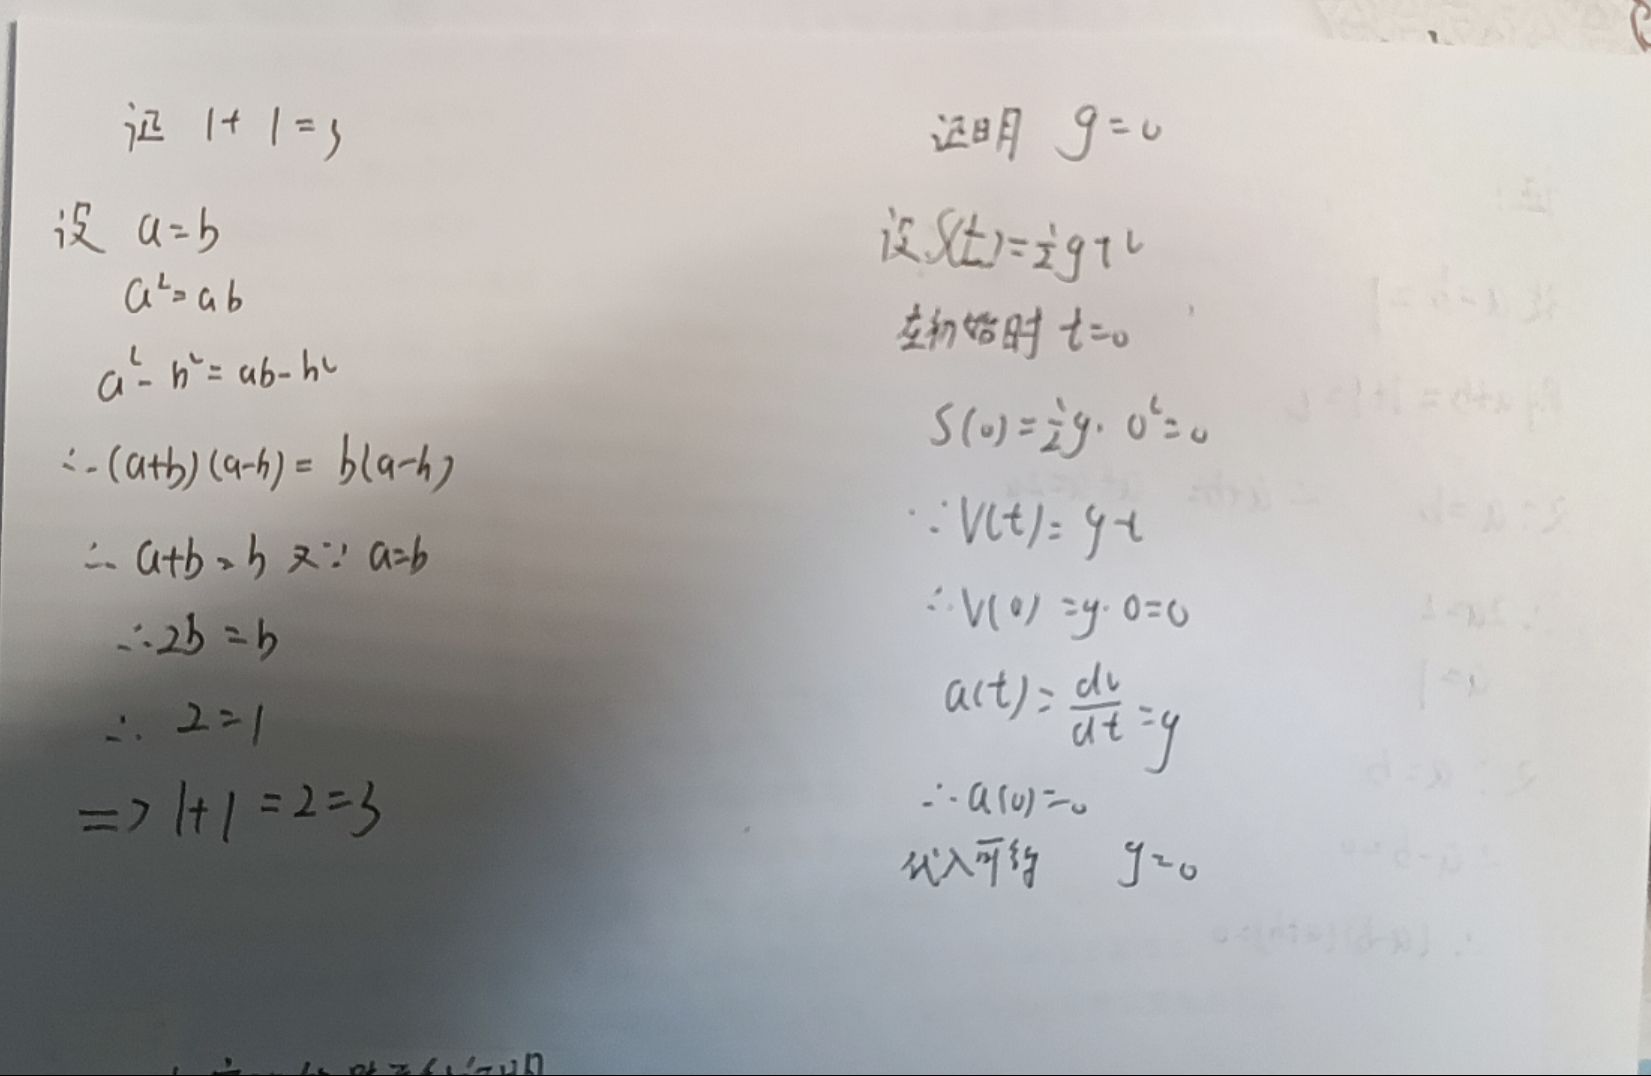 证 1+1=3
设 a=b
a²=ab
a²-b²=ab-b²
∴(a+b)(a-b)=b(a-b)
∴a+b=b 又∵ a=b
∴2b=b
∴ 2=1
=>1+1=2=3
证明 g=0
设S(t)=½gt²
在初始时 t=0
S(0)=½g·0²=0
∵V(t)=gt
∴V(0)=g·0=0
a(t)=dv/dt=g
∴a(0)=0
代入可得 g=0